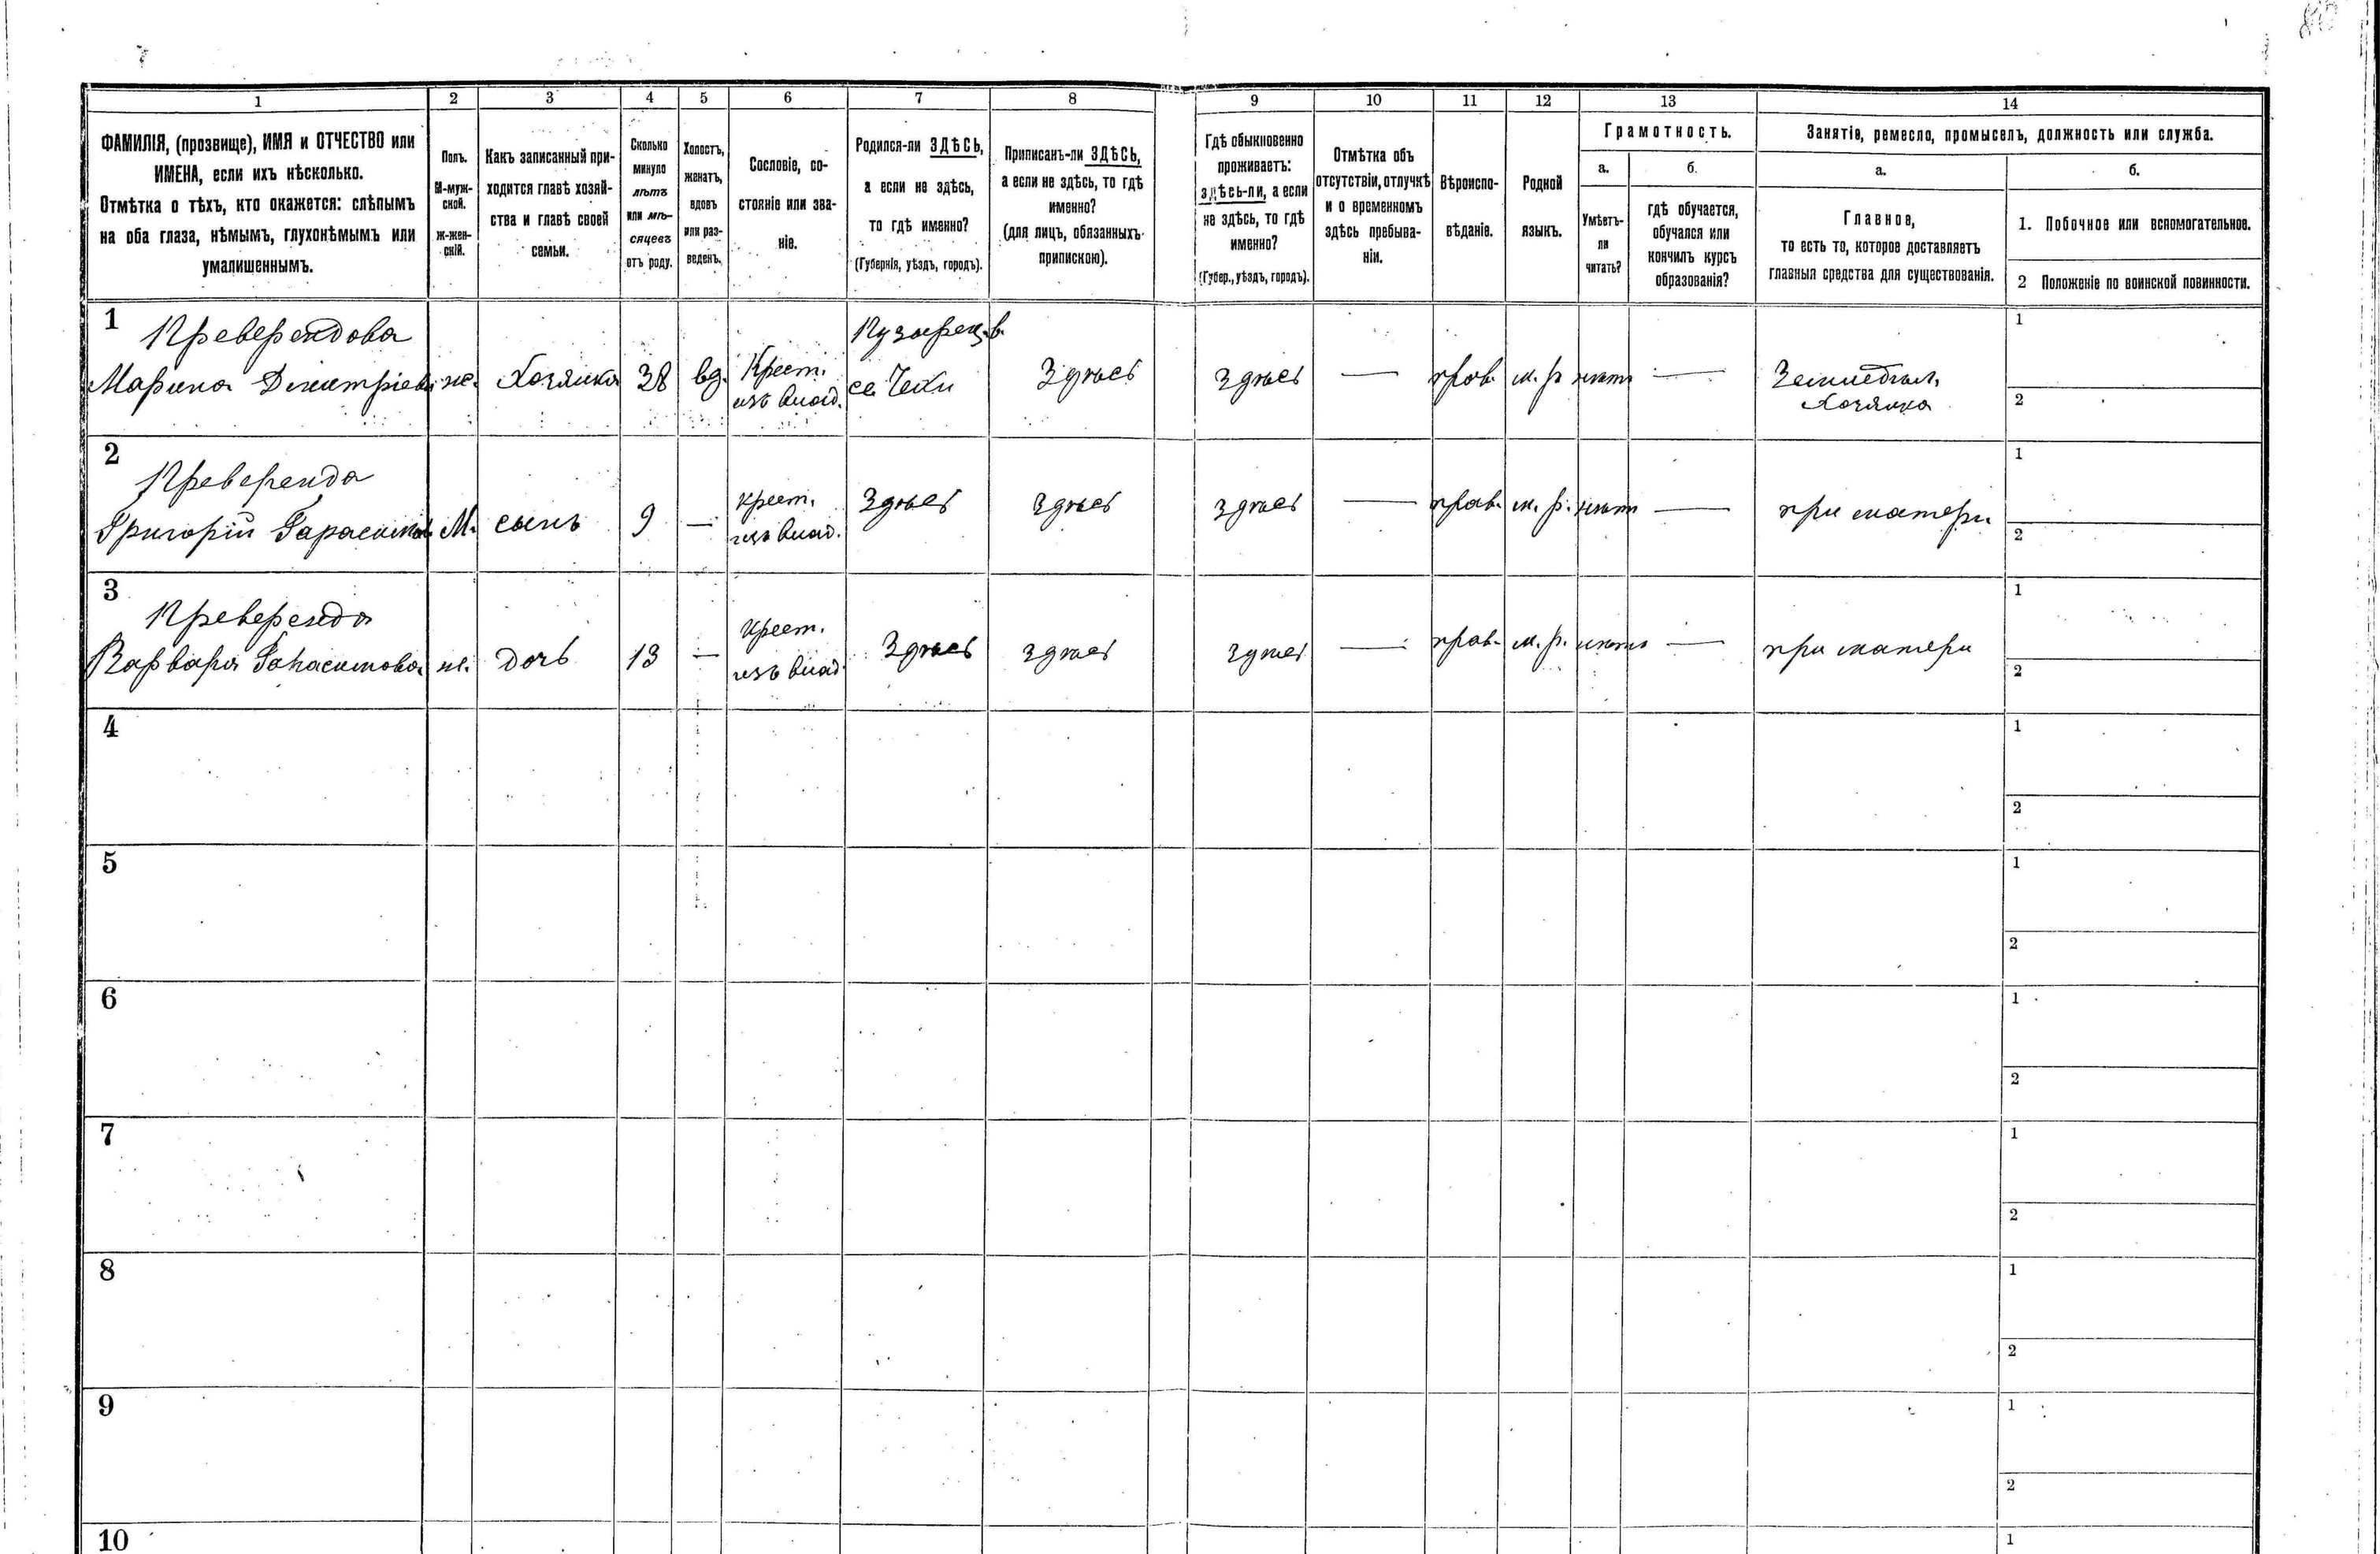 1 2 3 4 5 6 7 8 9 10 11 12 13 14
ФАМИЛІЯ, (прозвище), ИМЯ и ОТЧЕСТВО или
ИМЕНА, если ихъ нѣсколько.
Отмѣтка о тѣхъ, кто окажется: слѣпымъ
на оба глаза, нѣмымъ, глухонѣмымъ или
умалишеннымъ.
Полъ.
М-муж-
ской.
ж-жен-
скій.
Какъ записанный при-
ходится главѣ хозяй-
ства и главѣ своей
семьи.
Сколько
минуло
лѣтъ
или мѣ-
сяцевъ
отъ роду.
Холостъ,
женатъ,
вдовъ
или раз-
веденъ.
Сословіе, со-
стояніе или зва-
ніе.
Родился-ли ЗДѢСЬ,
а если не здѣсь,
то гдѣ именно?
(Губернія, уѣздъ, городъ).
Приписанъ-ли ЗДѢСЬ,
а если не здѣсь, то гдѣ
именно?
(для лицъ, обязанныхъ
припискою).
Гдѣ обыкновенно
проживаетъ:
здѣсь-ли, а если
не здѣсь, то гдѣ
именно?
(Губер., уѣздъ, городъ).
Отмѣтка объ
отсутствіи, отлучкѣ
и о временномъ
здѣсь пребыва-
ніи.
Вѣроиспо-
вѣданіе.
Родной
языкъ.
Грамотность.
а.
Умѣетъ-
ли
читать?
б.
гдѣ обучается,
обучался или
кончилъ курсъ
образованія?
Занятіе, ремесло, промыселъ, должность или служба.
а.
Главное,
то есть то, которое доставляетъ
главныя средства для существованія.
б.
1. Побочное или вспомогательное.
2 Положеніе по воинской повинности.
1 Превереcндова
Марина Дмитріева ж. Хозяйка 38 вд. Крест. изъ влад. с. Чехи Здѣсь Здѣсь — прав. м. р. нѣтъ — Земледѣл. 1
Хозяйка 2
2 Преверенда 1
Григорій Гарасимов М. сынъ 9 — крест. изъ влад. Здѣсь Здѣсь Здѣсь — прав. м. р. нѣтъ — при матери 2
3 Преверенда 1
Варвара Гарасимова ж. дочь 13 — Крест. изъ влад. Здѣсь Здѣсь Здѣсь — прав. м. р. нѣтъ — при матери 2
4 1
2
5 1
2
6 1
2
7 1
2
8 1
2
9 1
2
10 1